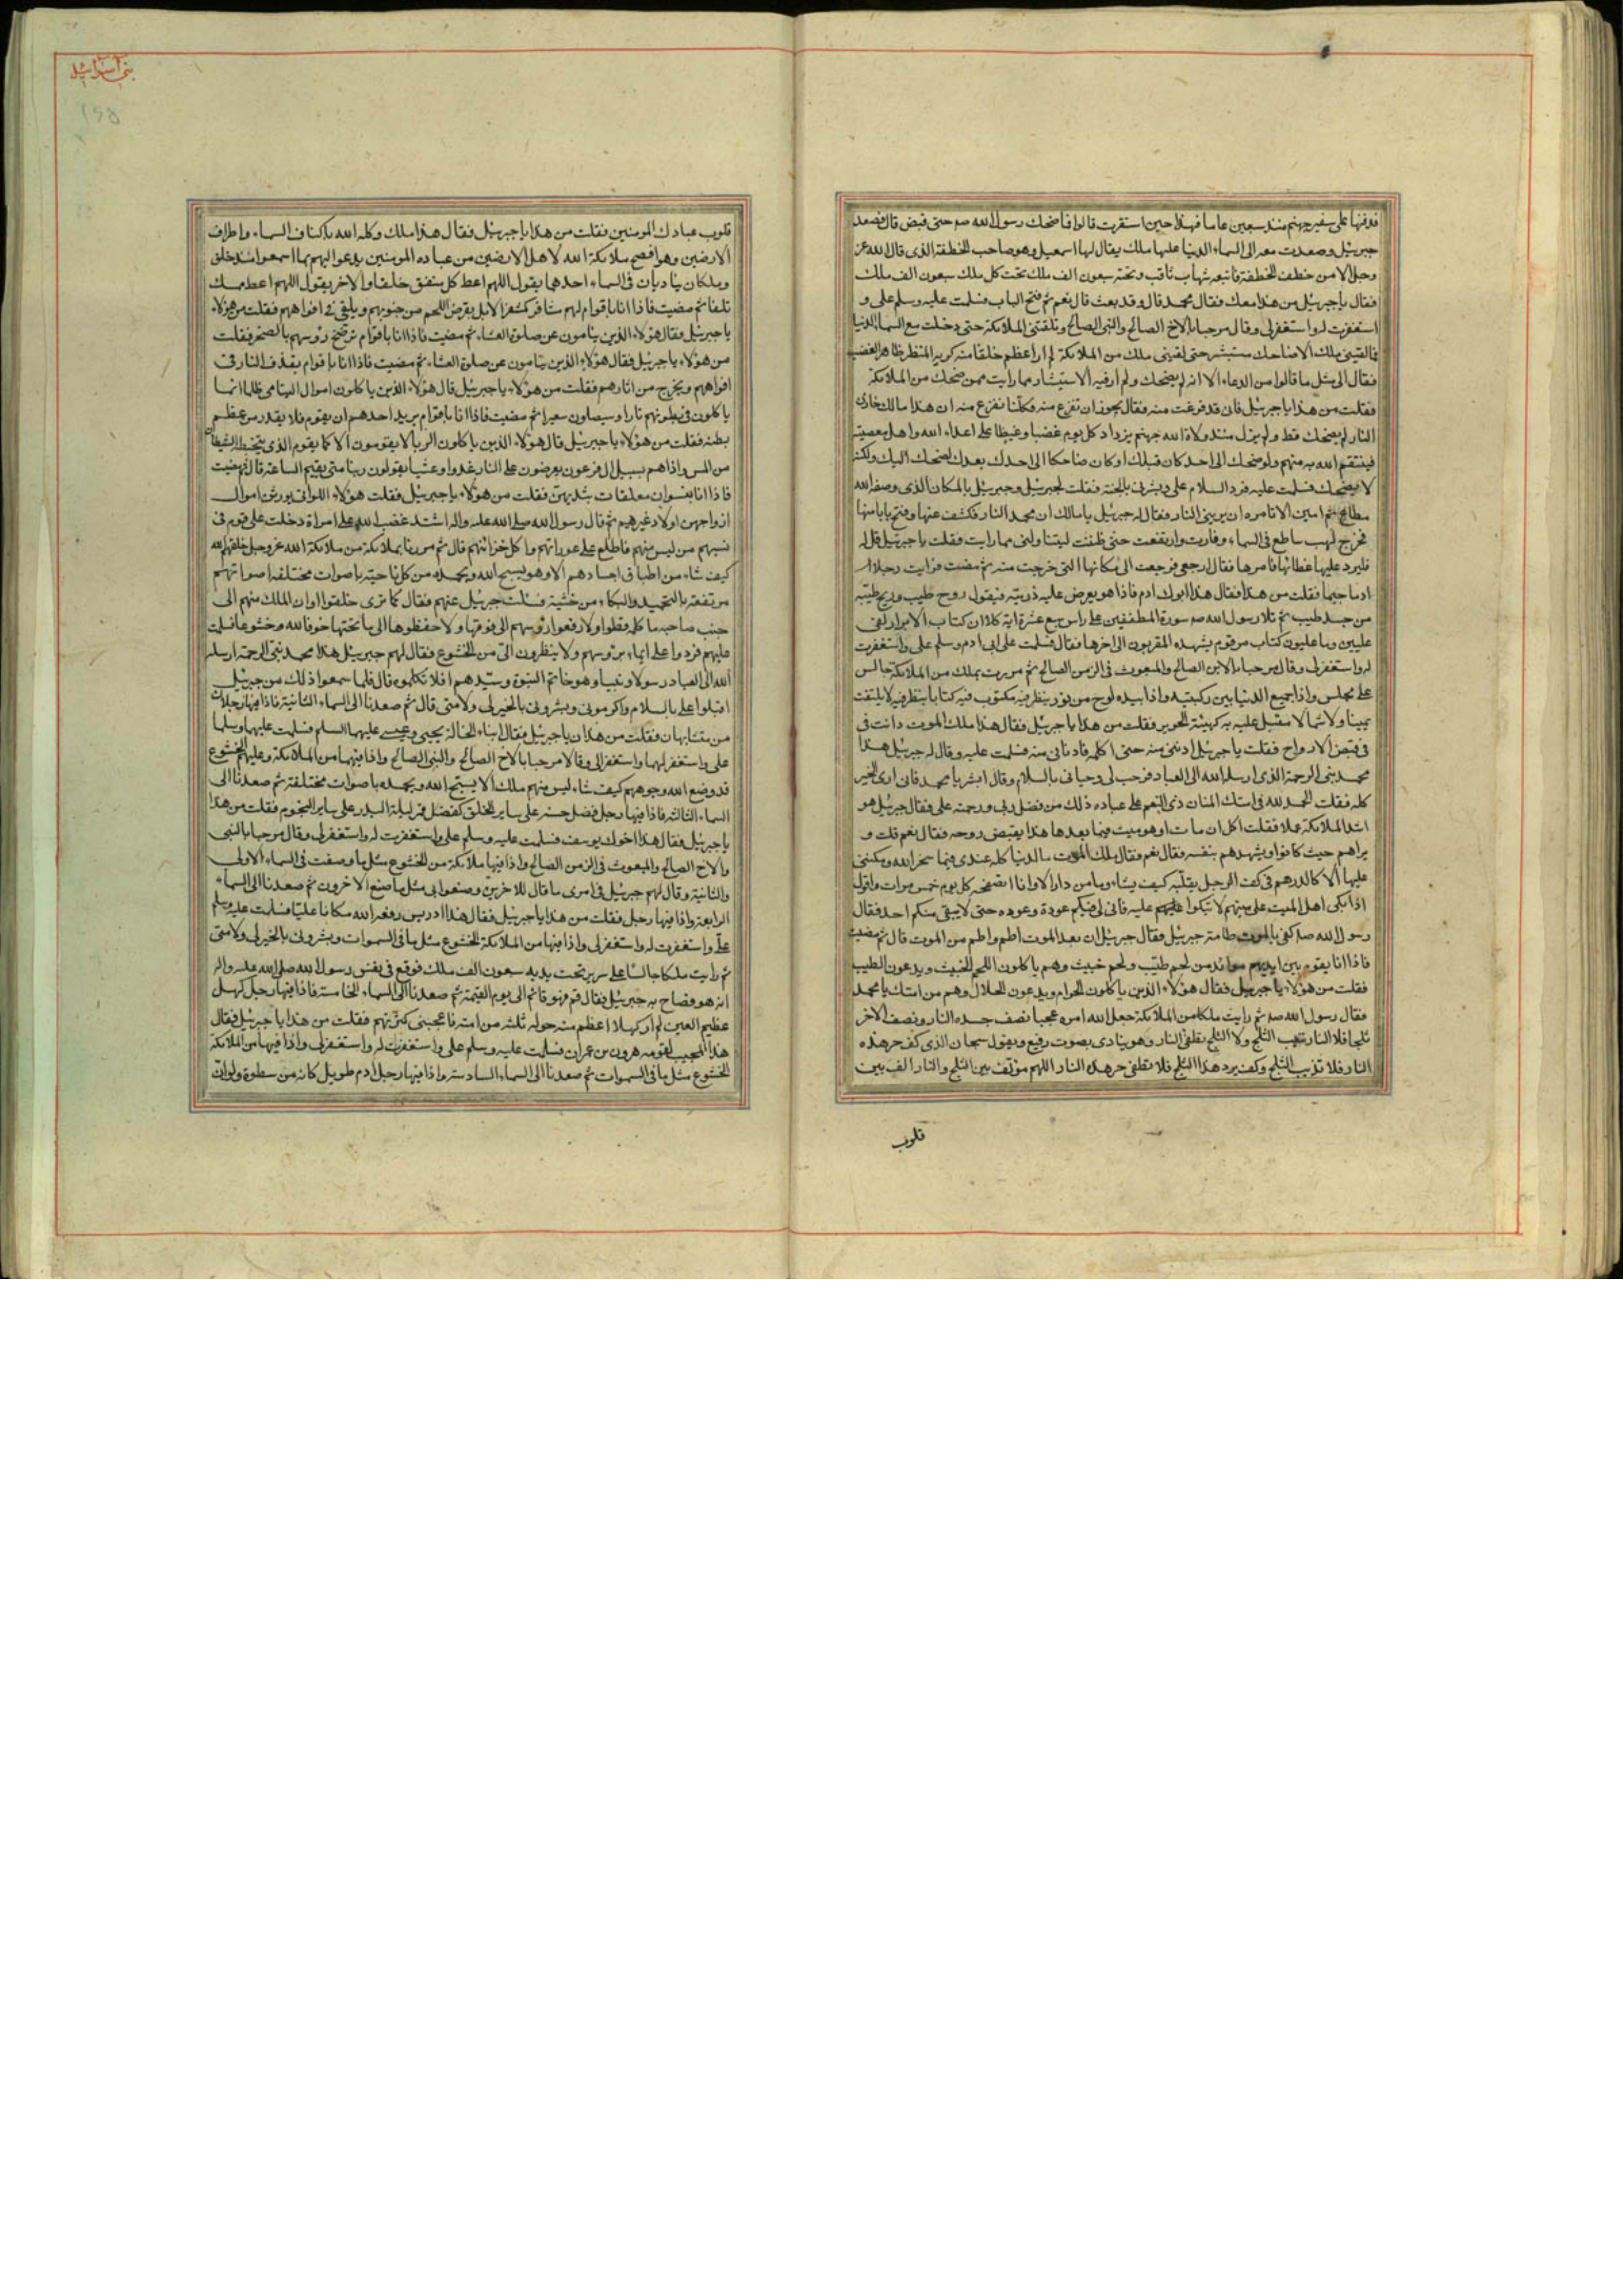 قذفتها على شفير جهنم منذ سبعين عاما فهذا حين استقرت قالوا فما ضحك رسول الله صم حتى قبض قال فصعد
جبرئيل وصعدت معه الى السماء الدنيا عليها ملك يقال لها اسمعيل وهو صاحب الخطفة الذى قال الله عز
وجل الا من خطف الخطفة فاتبعه شهاب ثاقب وتحته سبعون الف ملك تحت كل ملك سبعون الف ملك
فقال يا جبرئيل من هذا معك فقال محمد قال وقد بعث قال نعم ثم فتح الباب فسلمت عليه وسلم على و
استغفرت له واستغفرلى وقال مرحبا بالاخ الصالح والنبى الصالح وتلقتنى الملائكة حتى دخلت مع السماء الدنيا
فما لقينى ملك الا ضاحك مستبشر حتى لقينى ملك من الملائكة لم ار اعظم خلقا منه كريه المنظر ظاهر الغضب
فقال الى مثل ما قالوا من الدعاء الا انه لم يضحك ولم ار فيه الاستبشار مما رايت ممن ضحك من الملائكة
فقلت من هذا يا جبرئيل فانى قد فزعت منه فقال يجوز ان تفزع منه فكلنا نفزع منه ان هذا مالك خازن
النار لم يضحك قط ولم يزل منذ ولاه الله جهنم يزداد كل يوم غضبا وغيظا على اعداء الله واهل معصيته
فينتقم الله به منهم ولو ضحك الى احد كان قبلك او كان ضاحكا الى احد بعدك لضحك اليك ولكنه
لا يضحك فسلمت عليه فرد السلام على وبشرنى بالجنة فقلت لجبرئيل وجبرئيل بالمكان الذى وصفه الله
مطاع ثم امين الا تامره ان يرينى النار فقال له جبرئيل يا مالك ار محمد النار فكشف عنها وفتح بابا منها
فخرج لهب ساطع فى السماء وفارت وارتفعت حتى ظننت ليتناولنى مما رايت فقلت يا جبرئيل قل له
فليرد عليها غطائها فامرها فقال ارجعى فرجعت الى مكانها التى خرجت منه ثم مضيت فرايت رجلا ا
ادما جسيما فقلت من هذا فقال هذا ابوك ادم فاذا هو يعرض عليه ذريته فيقول روح طيب وريح طيبة
من جسد طيب ثم تلا رسول الله صم سورة المطففين على راس سبع عشرة اية كلا ان كتاب الابرار لفى
عليين وما عليون كتاب مرقوم يشهده المقربون الى اخرها فقال فسلمت على ابى ادم وسلم على واستغفرت
له واستغفرلى وقال مرحبا بالابن الصالح والمبعوث فى الزمن الصالح ثم مررت بملك من الملائكة جالس
على مجلس واذا جميع الدنيا بين ركبتيه واذا بيده لوح من نور ينظر فيه مكتوب فيه كتابا ينظر فيه لا يلتفت
يمينا ولا شمالا مقبل عليه به كهيئة الحزين فقلت من هذا يا جبرئيل فقال هذا ملك الموت دائب فى
فى قبض الارواح فقلت يا جبرئيل ادننى منه حتى اكلمه فادنانى منه فسلمت عليه وقال له جبرئيل هذا
محمد نبى الرحمة الذى ارسله الله الى العباد فرحب لى وحيانى بالسلام وقال ابشر يا محمد فانى ارى الخير
كله فقلت الحمد لله فى امتك المنان ذى النعم على عباده ذلك من فضل ربى ورحمته على فقال جبرئيل هو
اشد الملائكة عملا فقلت اكل من مات او هو ميت فيما بعدها هذا يقبض روحه فقال نعم قلت و
يراهم حيث كانوا ويشهدهم بنفسه فقال نعم فقال ملك الموت ما الدنيا كله عندى فيما سخر الله ومكننى
عليها الا كالدرهم فى كف الرجل يقلبه كيف يشاء وما من دار الا وانا اتصفحه كل يوم خمس مرات واقول
اذا بكى اهل الميت على ميتهم لا تبكوا عليهم عليه فانى لى فيكم عودة وعوده حتى لا يبقى منكم احد فقال
رسول الله صم كفى بالموت طامة جبرئيل فقال جبرئيل ان بعد الموت اطم واطم من الموت قال ثم مضيت
فاذا انا بقوم بين ايديهم موائد من لحم طيب ولحم خبيث وهم ياكلون اللحم الخبيث ويدعون الطيب
فقلت من هؤلاء يا جبرئيل فقال هؤلاء الذين ياكلون الحرام ويدعون الحلال وهم من امتك يا محمد
فقال رسول الله صم ثم رايت ملكا من الملائكة جعل الله امره عجيبا نصف جسده النار ونصف الاخر
ثلجا فلا النار تذيب الثلج ولا الثلج تطفى النار وهو ينادى بصوت رفيع ويقول سبحان الذى كف حر هذه
النار فلا تذيب الثلج وكف برد هذا الثلج فلا تطفى حر هذه النار اللهم مؤلف بين الثلج والنار الف بين
قلوب
بنى اسرائيل
قلوب عبادك المومنين فقلت من هذا يا جبرئيل فقال هذا ملك وكله الله باكناف السماء واطراف
الارضين وهو افصح ملائكة الله لاهل الارضين من عباده المومنين يدعو اليهم بما اسمعوا منذ خلق
وملكان يناديان فى السماء احدهما يقول اللهم اعط كل منفق خلفا والاخر يقول اللهم اعط ممسك
تلفا ثم مضيت فاذا انا باقوام لهم مشافر كمشفر الابل يقرض اللحم من جنوبهم ويلقى فى افواههم فقلت من هؤلاء
يا جبرئيل فقال هؤلاء الذين ينامون عن صلوة العشاء ثم مضيت فاذا انا باقوام ترضخ رؤسهم بالصخر فقلت
من هؤلاء يا جبرئيل فقال هؤلاء الذين ينامون عن صلوة العشاء ثم مضيت فاذا انا باقوام يقذف النار فى
افواههم ويخرج من ادبارهم فقلت من هؤلاء يا جبرئيل قال هؤلاء الذين ياكلون اموال اليتامى ظلما انما
ياكلون فى بطونهم نارا وسيصلون سعيرا ثم مضيت فاذا انا باقوام يريد احدهم ان يقوم فلا يقدر من عظم
بطنه فقلت من هؤلاء يا جبرئيل قال هؤلاء الذين ياكلون الربا لا يقومون الا كما يقوم الذى يتخبطه الشيطان
من المس واذا هم بسبيل ال فرعون يعرضون على النار غدوا وعشيا يقولون ربنا متى يقيم الساعة قال ثم مضيت
فاذا انا بنسوان معلقات بثديهن فقلت من هؤلاء يا جبرئيل فقلت هؤلاء اللواتى يورثن اموال
ازواجهن اولاد غيرهم ثم قال رسول الله صلى الله عليه واله اشتد غضب الله على امراة دخلت على قوم فى
نسبهم من ليس منهم فاطلع على عوراتهم واكل خزائنهم قال ثم مررنا بملائكة من ملائكة الله عز وجل خلقهم الله
كيف شاء من اطباق اجسادهم الا وهو يسبح الله ويحمده من كل ناحية باصوات مختلفه اصواتهم
مرتفعة بالتحميد والبكاء من خشية فسالت جبرئيل عنهم فقال كما ترى خلقوا وان الملك منهم الى
جنب صاحبه ما كلمه قط ولا رفعوا رؤسهم الى فوقها ولا حفظوها الى ما تحتها خوفا لله وخشوعا فسلمت
عليهم فردوا على ايماء برؤسهم ولا ينظرون الى من الخشوع فقال لهم جبرئيل هذا محمد نبى الرحمة ارسله
الله الى العباد رسولا ونبيا وهو خاتم النبوة وسيدهم افلا تكلموه قال فلما سمعوا ذلك من جبرئيل
اقبلوا على بالسلام واكرمونى وبشرونى بالخير لى ولامتى قال ثم صعدنا الى السماء الثانية فاذا فيها رجلان
من متشابهان فقلت من هذان يا جبرئيل فقال ابناء الخالة يحيى وعيسى عليهما السلم فسلمت عليهما وسلما
على واستغفر لهما واستغفرا لى وقالا مرحبا بالاخ الصالح والنبى الصالح واذا فيها من الملائكة وعليهم الخشوع
قد وضع الله وجوههم كيف شاء ليس منهم ملك الا يسبح الله ويحمده باصوات مختلفة ثم صعدنا الى
السماء الثالثة فاذا فيها رجل فضل حسنه على ساير الخلق كفضل قمر ليلة البدر على ساير النجوم فقلت من هذا
يا جبرئيل فقال هذا اخوك يوسف فسلمت عليه وسلم على واستغفرت له واستغفرلى وقال مرحبا بالنبى
والاخ الصالح والمبعوث فى الزمن الصالح واذا فيها ملائكة من الخشوع مثل ما وصفت فى السماء الاولى
والثانية وقال لهم جبرئيل فى امرى ما قال للاخرين وصنعوا بى مثل ما صنع الاخرون ثم صعدنا الى السماء
الرابعة واذا فيها رجل فقلت من هذا يا جبرئيل فقال هذا ادريس رفعه الله مكانا عليا فسلمت عليه وسلم
على واستغفرت له واستغفرلى واذا فيها من الملائكة الخشوع مثل ما فى السموات وبشرونى بالخير لى ولامتى
ثم رايت ملكا جالسا على سرير تحت يديه سبعون الف ملك فوقع فى نفس رسول الله صلى الله عليه واله
انه هو فصاح به جبرئيل فقال قم فهو قائم الى يوم القيمة ثم صعدنا الى السماء الخامسة فاذا فيها رجل كهل
عظيم العين لم ار كهلا اعظم منه حوله ثلثه من امته فاعجبنى كثرتهم فقلت من هذا يا جبرئيل فقال
هذا المجيب لقومه هرون بن عمران فسلمت عليه وسلم على واستغفرت له واستغفرلى واذا فيها من الملائكة
الخشوع مثل ما فى السموات ثم صعدنا الى السماء السادسة واذا فيها رجل ادم طويل كانه من سطوة ولو ان